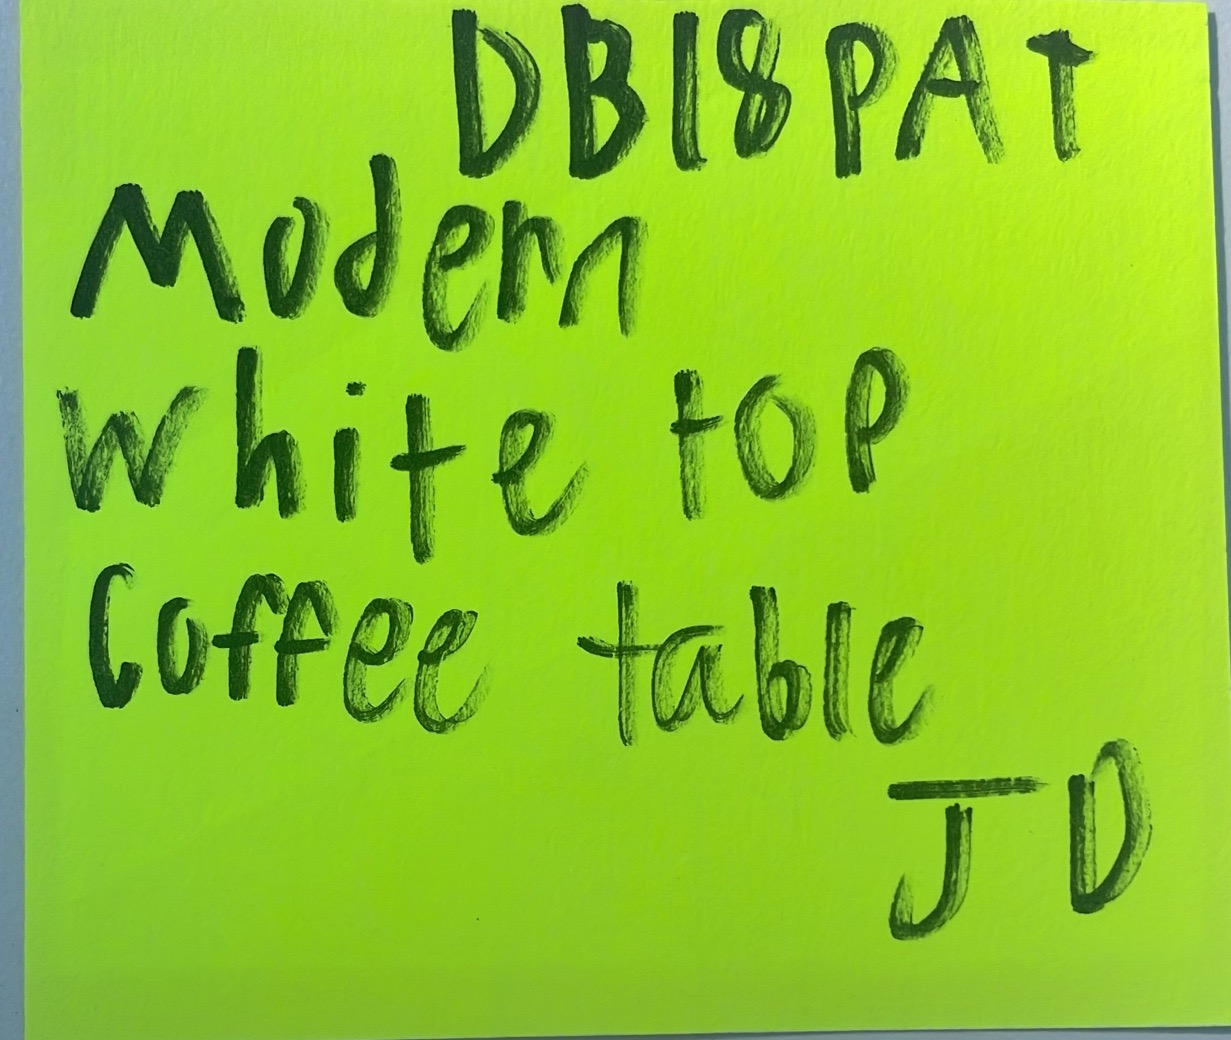 DB18PAT
Modern
White top
Coffee table
JD